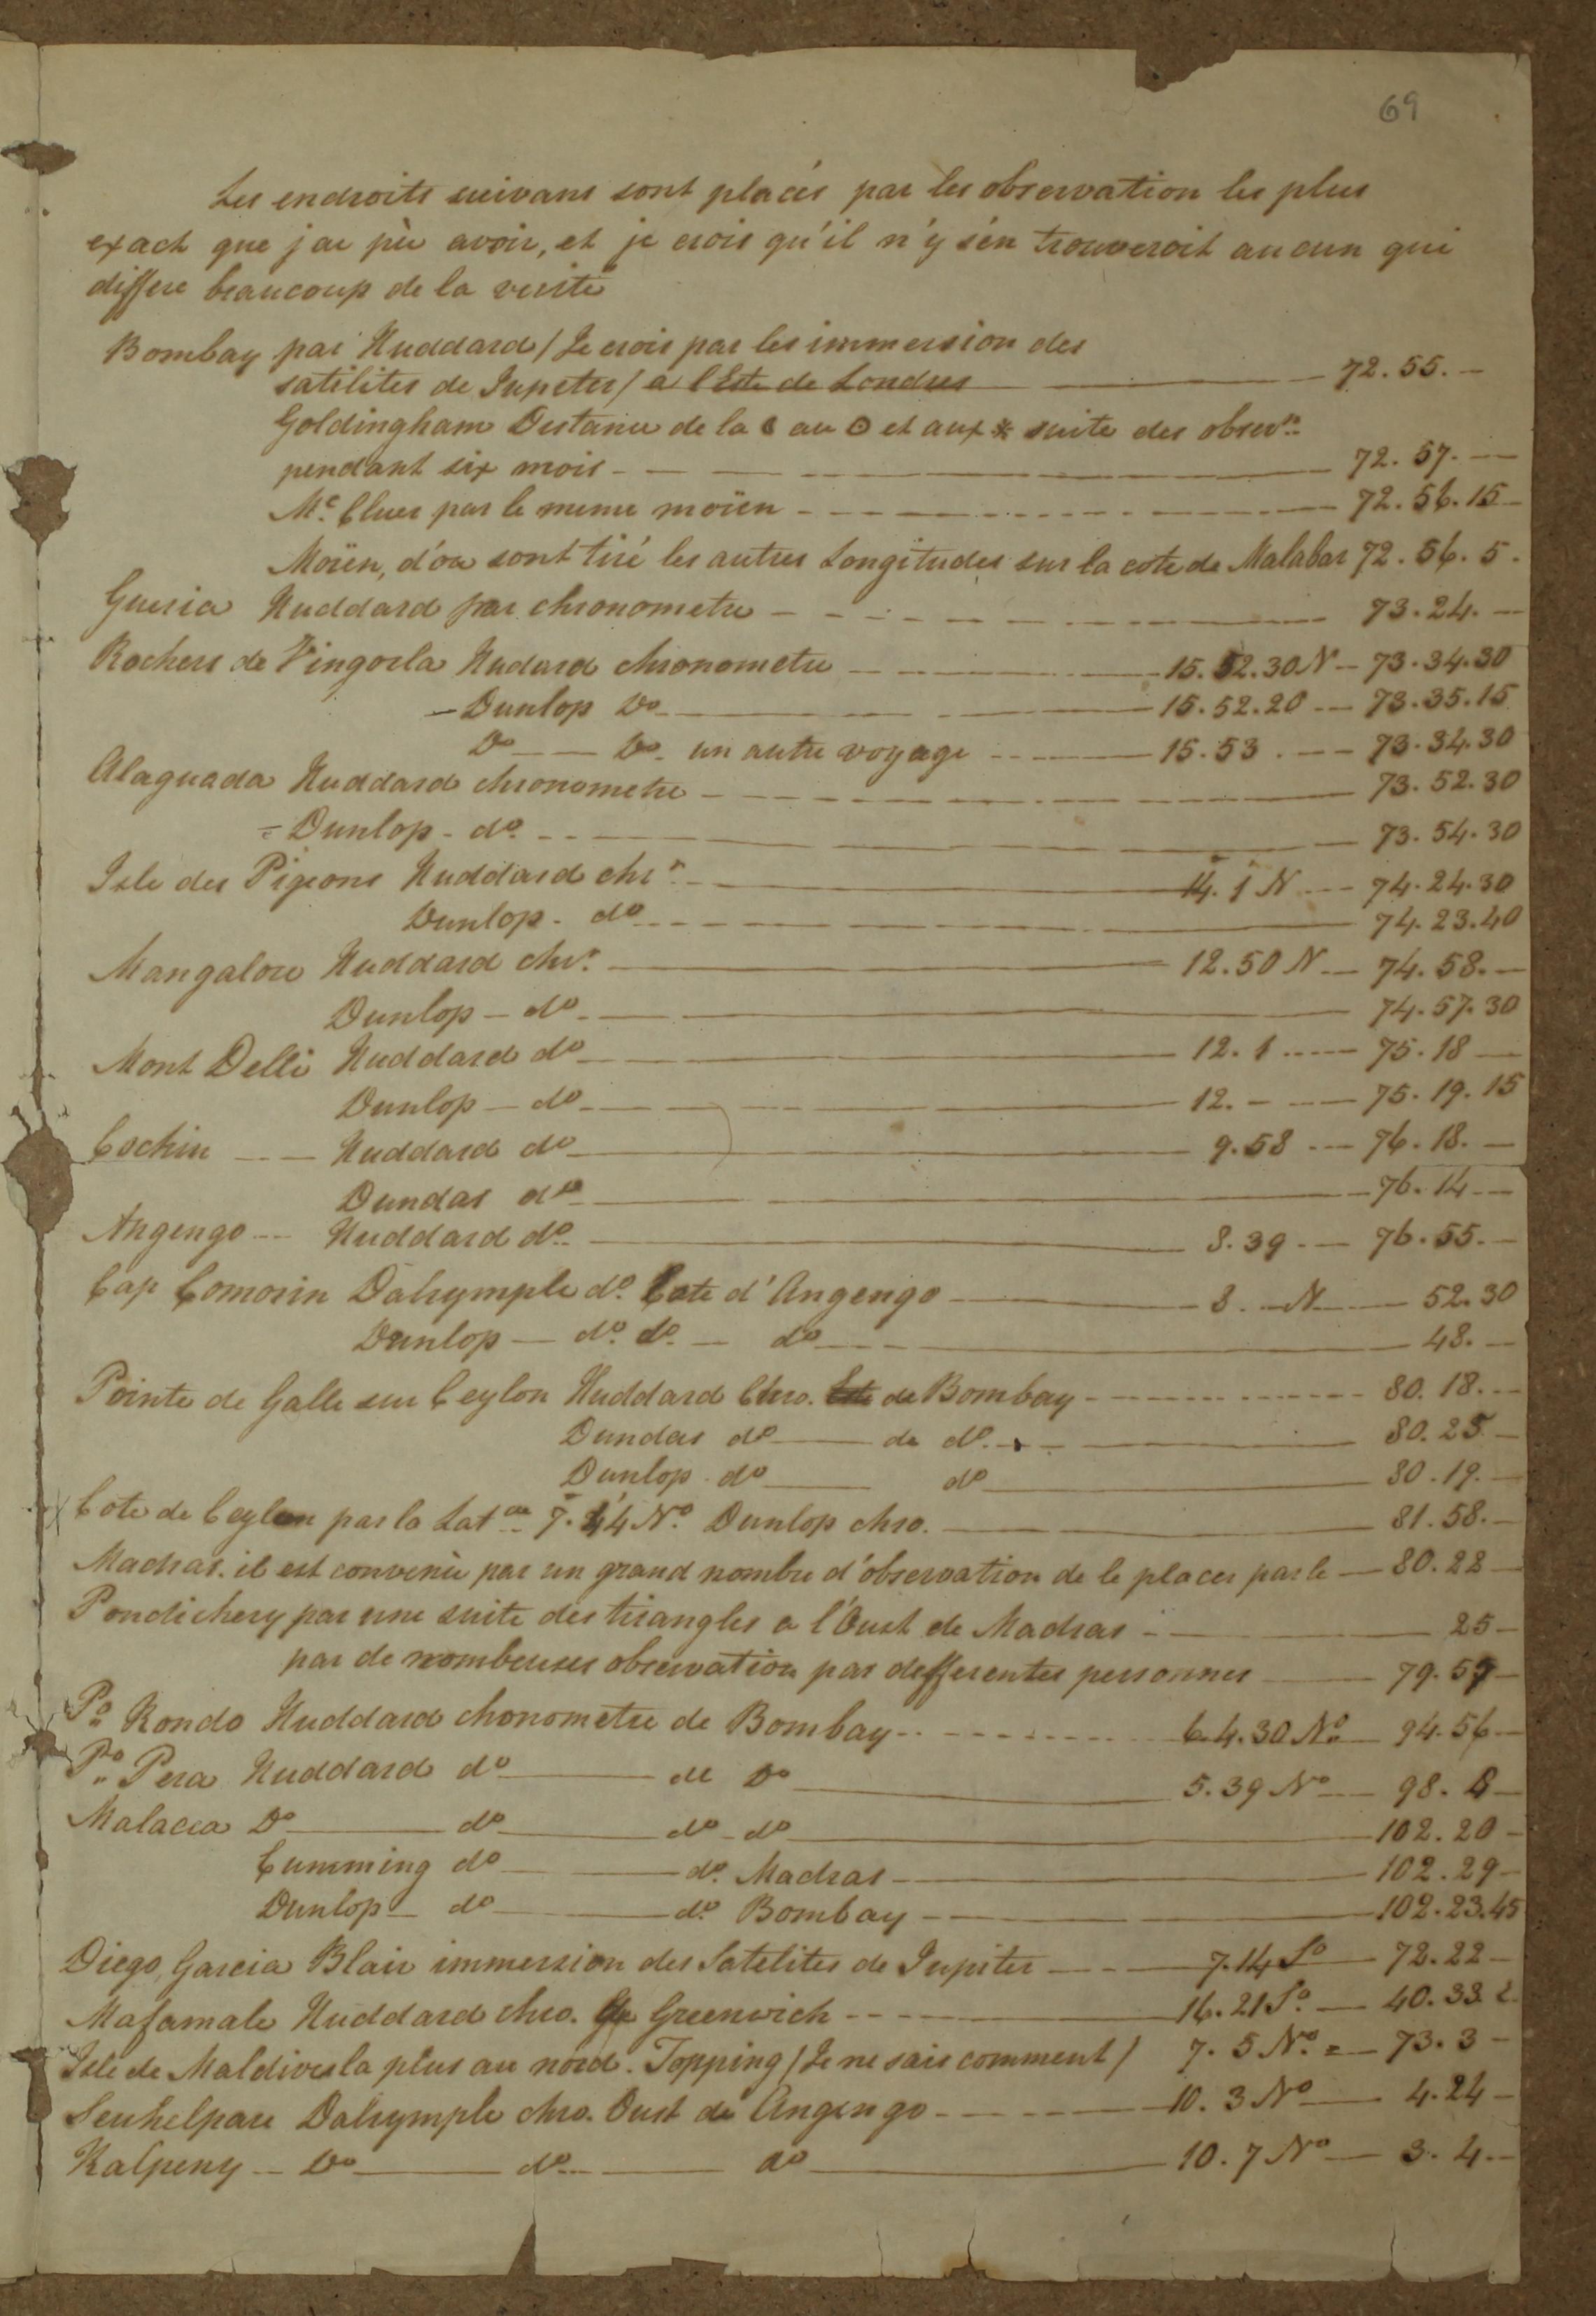 69
Les endroits suivans sont placés par les observation les plus
exact que j'ai pù avoir, et je crois qu'il n'y s'en trouveroit aucun qui
differe beaucoup de la verité
Bombay par Huddard / Je crois par les immersion des
satilites de Jupeter / a l'Este de Londres — 72.55.—
Goldingham Distance de la ☾ au ☉ et aux * suite des obserns.
pendant six mois — 72.57.—
Mc. Cluer par le meme moïen — 72.56.15
Moïen, d'ou sont tiré les autres Longitudes sur la cote de Malabar 72.56.5.
Gueria Huddard par chronometre — 73.24.—
Rochers de Vingorla Hudard chronometre — 15.52.30 N — 73.34.30
— Dunlop Do — 15.52.20 — 73.35.15
Do — Do. un autre voyage — 15.53. — 73.34.30
Alaguada Huddard chronometre — 73.52.30
= Dunlop - do. — 73.54.30
Isle des Pigeons Huddard chrr. — 14.1 N — 74.24.30
Dunlop - do — 74.23.40
Mangalore Huddard chrr. — 12.50 N — 74.58.—
Dunlop — do. — 74.57.30
Mont Delli Huddard do — 12.1 — 75.18 —
Dunlop — do — 12.- — 75.19.15
Cochin — Huddard do — 9.58 — 76.18.—
Dundas do — 76.14 —
Angengo — Huddard do. — 8.39 — 76.55.—
Cap Comorin Dalrymple do. Cote d'Angengo — 8. — N — 52.30
Dunlop — do. do. — do — 48.—
Pointe de Galle sur Ceylon Huddard Chro. Este de Bombay — 80.18.—
Dundas do — de do. — 80.25 —
Dunlop - do — do — 80.19.—
Cote de Ceylon par la Latde 7.44 No. Dunlop chro. — 81.58.—
Madras. il est convenùe par un grand nombre d'observation de le placer par le — 80.22 —
Pondichery par une suite des triangles a l'Oust de Madras — 25 —
par de nombreuses observation par defferentes personnes — 79.57 —
Po. Rondo Huddard chonometre de Bombay — 6.4.30 No. — 94.56 —
Po. Pera Huddard do — de Do — 5.39 No — 98.8 —
Malacca Do — do — do - do — 102.20 —
Cumming do — do. Madras — 102.29 —
Dunlop — do — do. Bombay — 102.23.45
Diego, Garcia Blair immersion des Satelites de Jupiter — 7.14 So — 72.22 —
Mafamale Huddard chro. de Greenwich — 16.21 So. — 40.33.2
Isle de Maldives la plus au nord. Topping / Je ne sais comment / 7.5 No. = — 73.3 —
Seuhelpare Dalrymple chro. Oust de Angengo — 10.3 No — 4.24 —
Kalpeny — Do — do. — do — 10.7 No — 3.4.—